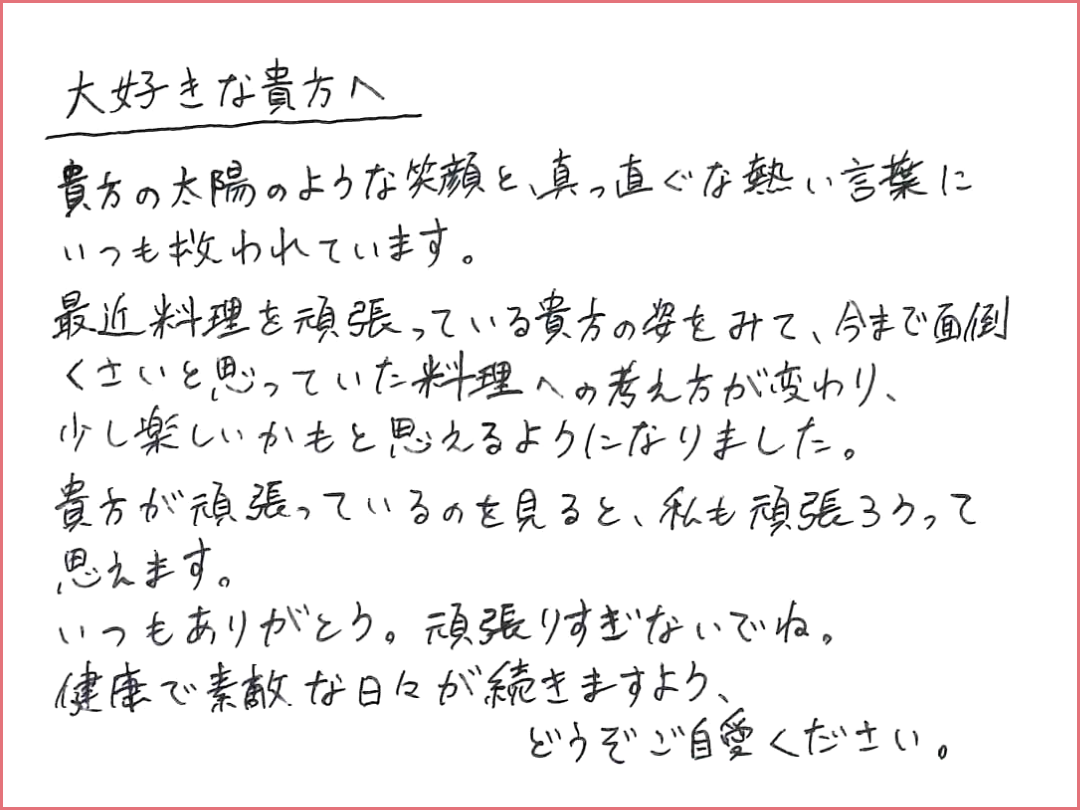 大好きな貴方へ
貴方の太陽のような笑顔と、真っ直ぐな熱い言葉に
いつも救われています。
最近料理を頑張っている貴方の姿をみて、今まで面倒
くさいと思っていた料理への考え方が変わり、
少し楽しいかもと思えるようになりました。
貴方が頑張っているのを見ると、私も頑張ろうって
思えます。
いつもありがとう。頑張りすぎないでね。
健康で素敵な日々が続きますよう、
どうぞご自愛ください。